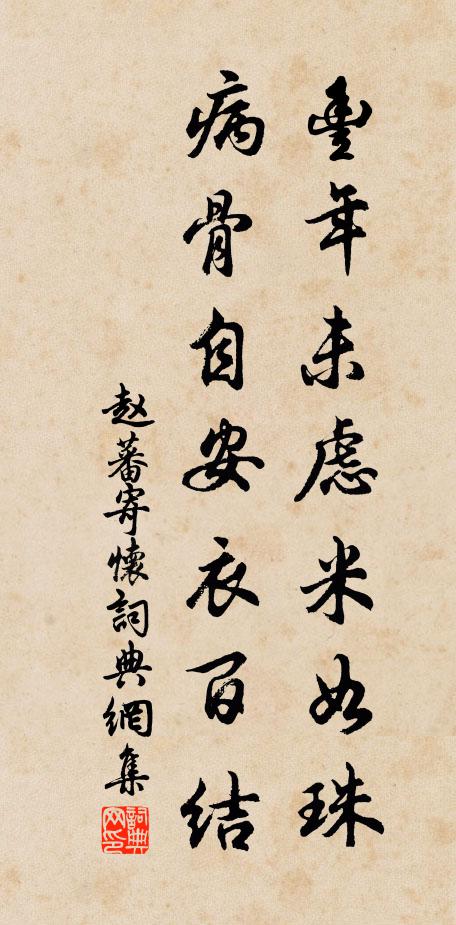 豊年未慮米如珠
病骨自安衣百结
赵蕃寄懷詞典網集
詞典网印